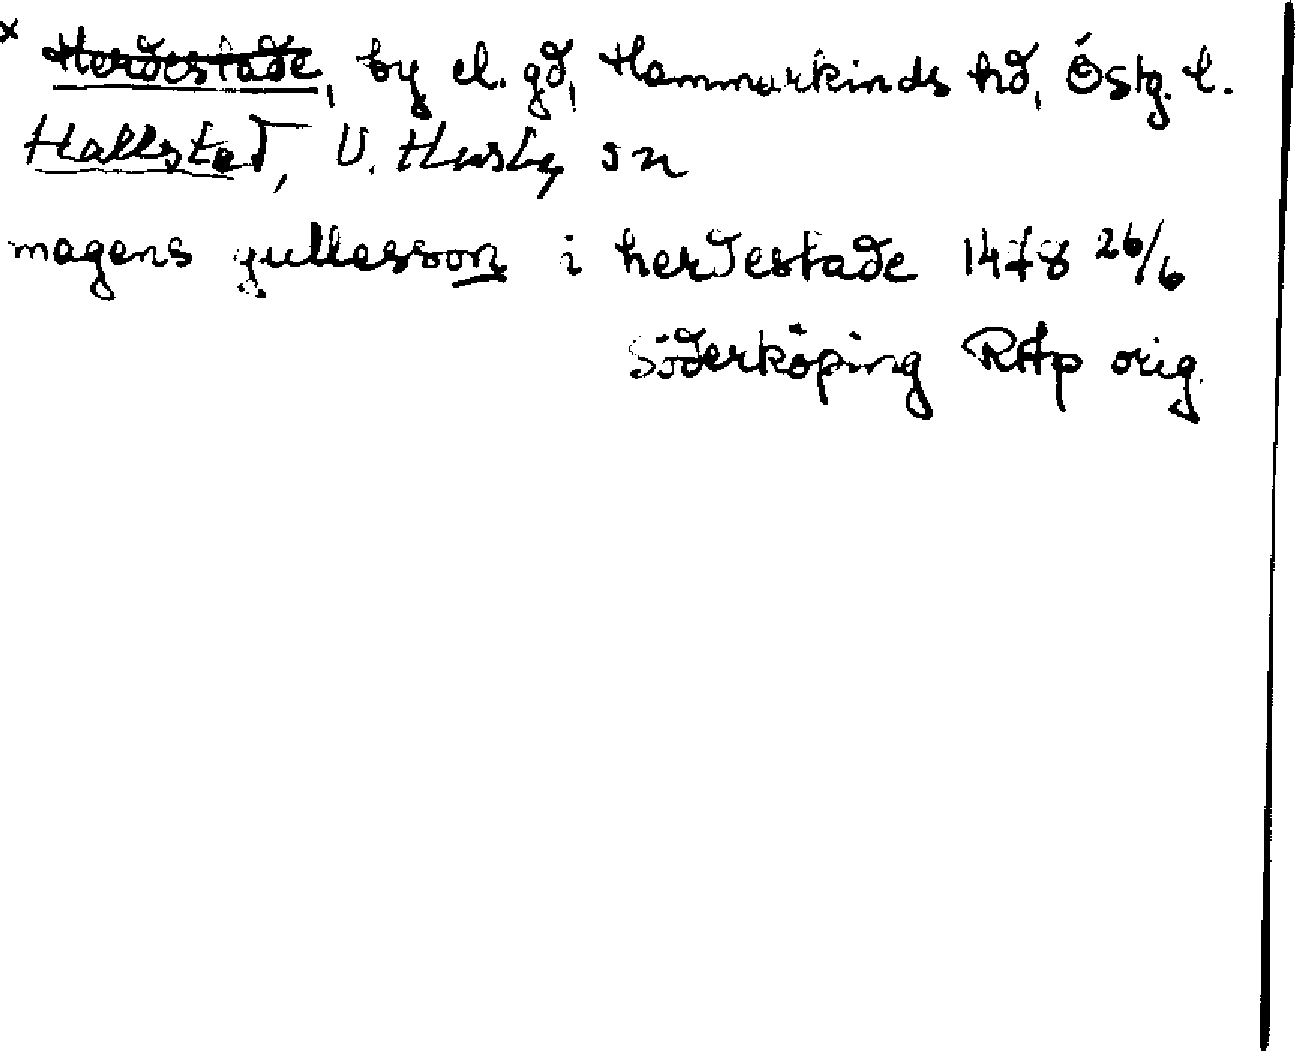 x Herdestade, by el. gd, Hammarkinds hd, Östg. l.
Hallstad, V. Husby sn
magens gullesson i herdestade 1478 26/6
Söderköping RAp orig.